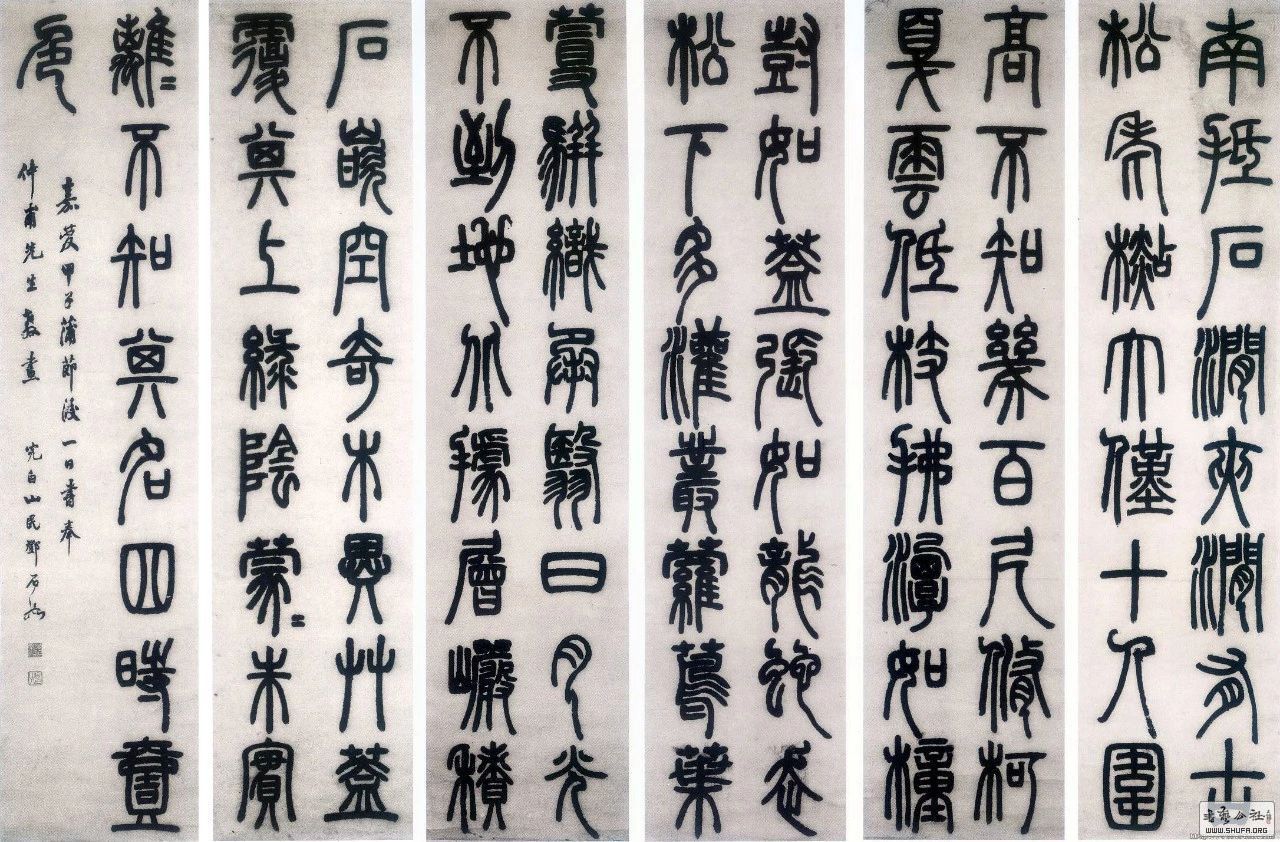 南抵石澗夾澗有古
松老檆大僅十人圍
高不知幾百尺脩柯
戛雲低枝拂潭如橦
尌如蓋張如龍蛇走
松下多灌叢蘿蔦葉
蔓駢織承翳日月光
不到地北據層巖積
石嵌空奇木異艸蓋
覆其上綠陰蒙〻朱實
離〻不知其名四時壹
色
嘉慶甲子蒲節後一日書奉
仲甫先生教畫 完白山民鄧石如
WWW.SHUFA.ORG